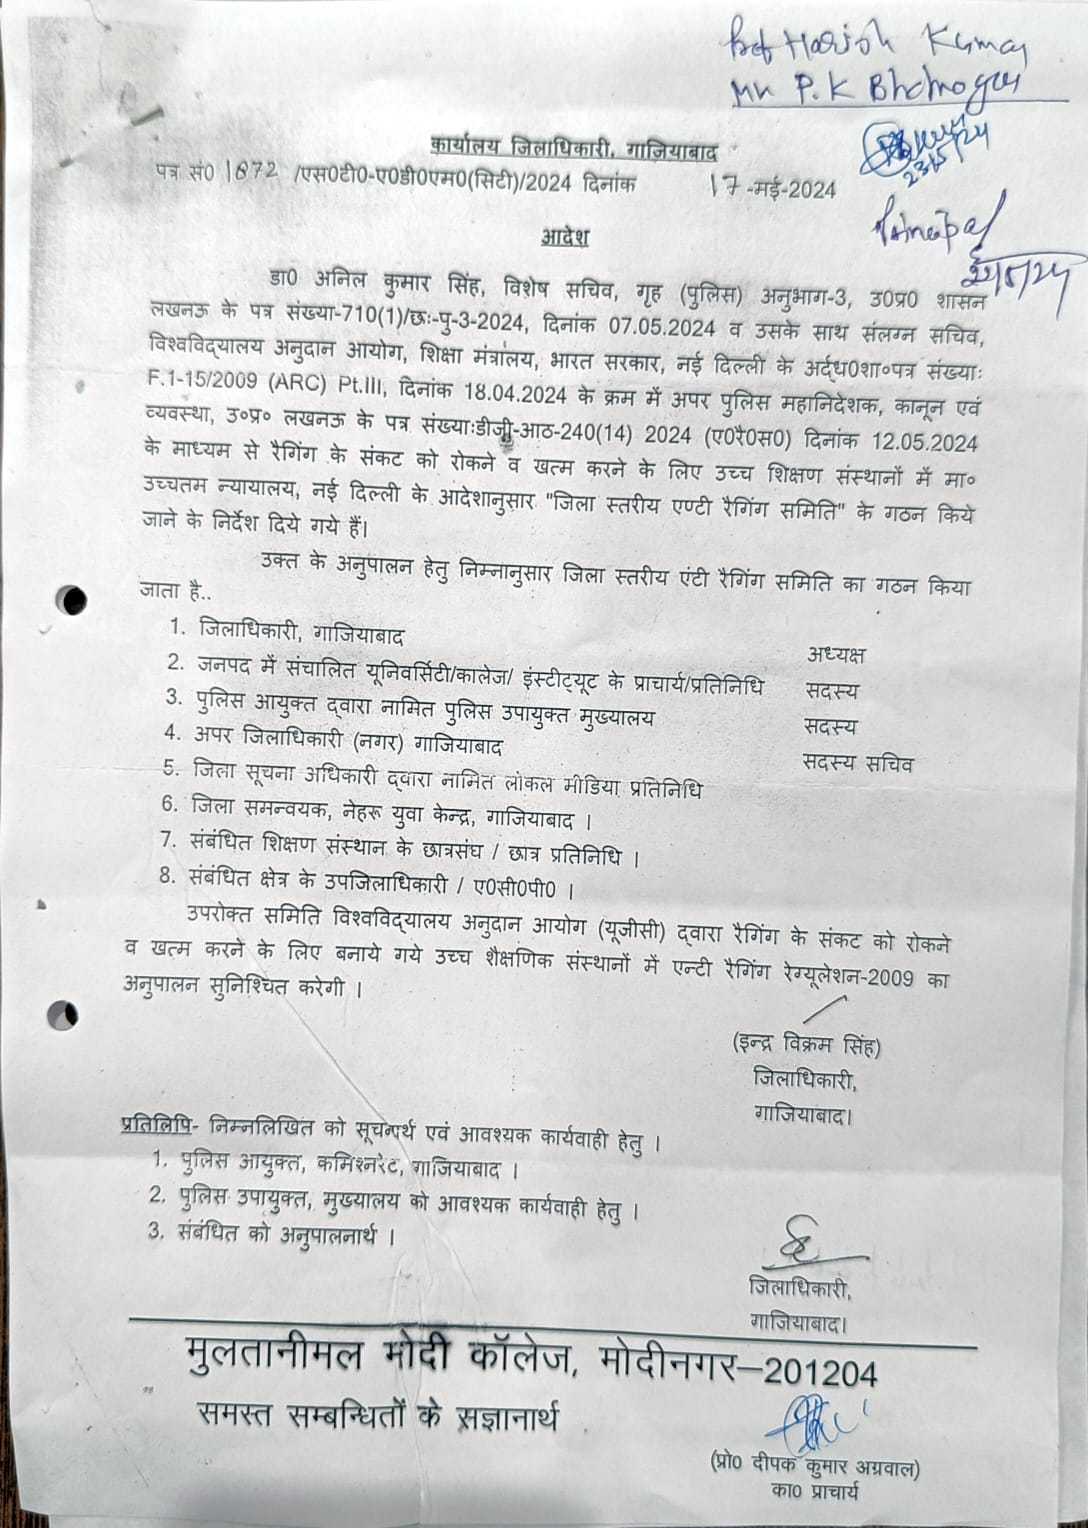 Prof Harish Kumar
Mr P.K Bhatnagar
23/5/24
कार्यालय जिलाधिकारी, गाजियाबाद
पत्र सं0 1872 /एस0टी0-ए0डी0एम0(सिटी)/2024 दिनांक 17 -मई-2024
Principal
आदेश
डा0 अनिल कुमार सिंह, विशेष सचिव, गृह (पुलिस) अनुभाग-3, उ0प्र0 शासन
लखनऊ के पत्र संख्या-710(1)/छः-पु-3-2024, दिनांक 07.05.2024 व उसके साथ संलग्न सचिव,
विश्वविद्यालय अनुदान आयोग, शिक्षा मंत्रालय, भारत सरकार, नई दिल्ली के अर्द्ध0शा०पत्र संख्याः
F.1-15/2009 (ARC) Pt.III, दिनांक 18.04.2024 के क्रम में अपर पुलिस महानिदेशक, कानून एवं
व्यवस्था, उ०प्र० लखनऊ के पत्र संख्याःडीजी-आठ-240(14) 2024 (ए0रै0स0) दिनांक 12.05.2024
के माध्यम से रैगिंग के संकट को रोकने व खत्म करने के लिए उच्च शिक्षण संस्थानों में मा०
उच्चतम न्यायालय, नई दिल्ली के आदेशानुसार "जिला स्तरीय एण्टी रैगिंग समिति" के गठन किये
जाने के निर्देश दिये गये हैं।
उक्त के अनुपालन हेतु निम्नानुसार जिला स्तरीय एंटी रैगिंग समिति का गठन किया
जाता है..
1. जिलाधिकारी, गाजियाबाद अध्यक्ष
2. जनपद में संचालित यूनिवर्सिटी/कालेज/ इंस्टीट्यूट के प्राचार्य/प्रतिनिधि सदस्य
3. पुलिस आयुक्त द्वारा नामित पुलिस उपायुक्त मुख्यालय सदस्य
4. अपर जिलाधिकारी (नगर) गाजियाबाद सदस्य सचिव
5. जिला सूचना अधिकारी द्वारा नामित लोकल मीडिया प्रतिनिधि
6. जिला समन्वयक, नेहरू युवा केन्द्र, गाजियाबाद ।
7. संबंधित शिक्षण संस्थान के छात्रसंघ / छात्र प्रतिनिधि ।
8. संबंधित क्षेत्र के उपजिलाधिकारी / ए0सी0पी0 ।
उपरोक्त समिति विश्वविद्यालय अनुदान आयोग (यूजीसी) द्वारा रैगिंग के संकट को रोकने
व खत्म करने के लिए बनाये गये उच्च शैक्षणिक संस्थानों में एन्टी रैगिंग रेग्यूलेशन-2009 का
अनुपालन सुनिश्चित करेगी ।
(इन्द्र विक्रम सिंह)
जिलाधिकारी,
गाजियाबाद।
प्रतिलिपि- निम्नलिखित को सूचनार्थ एवं आवश्यक कार्यवाही हेतु ।
1. पुलिस आयुक्त, कमिश्नरेट, गाजियाबाद ।
2. पुलिस उपायुक्त, मुख्यालय को आवश्यक कार्यवाही हेतु ।
3. संबंधित को अनुपालनार्थ ।
जिलाधिकारी,
गाजियाबाद।
मुलतानीमल मोदी कॉलेज, मोदीनगर–201204
समस्त सम्बन्धितों के सज्ञानार्थ
(प्रो0 दीपक कुमार अग्रवाल)
का0 प्राचार्य